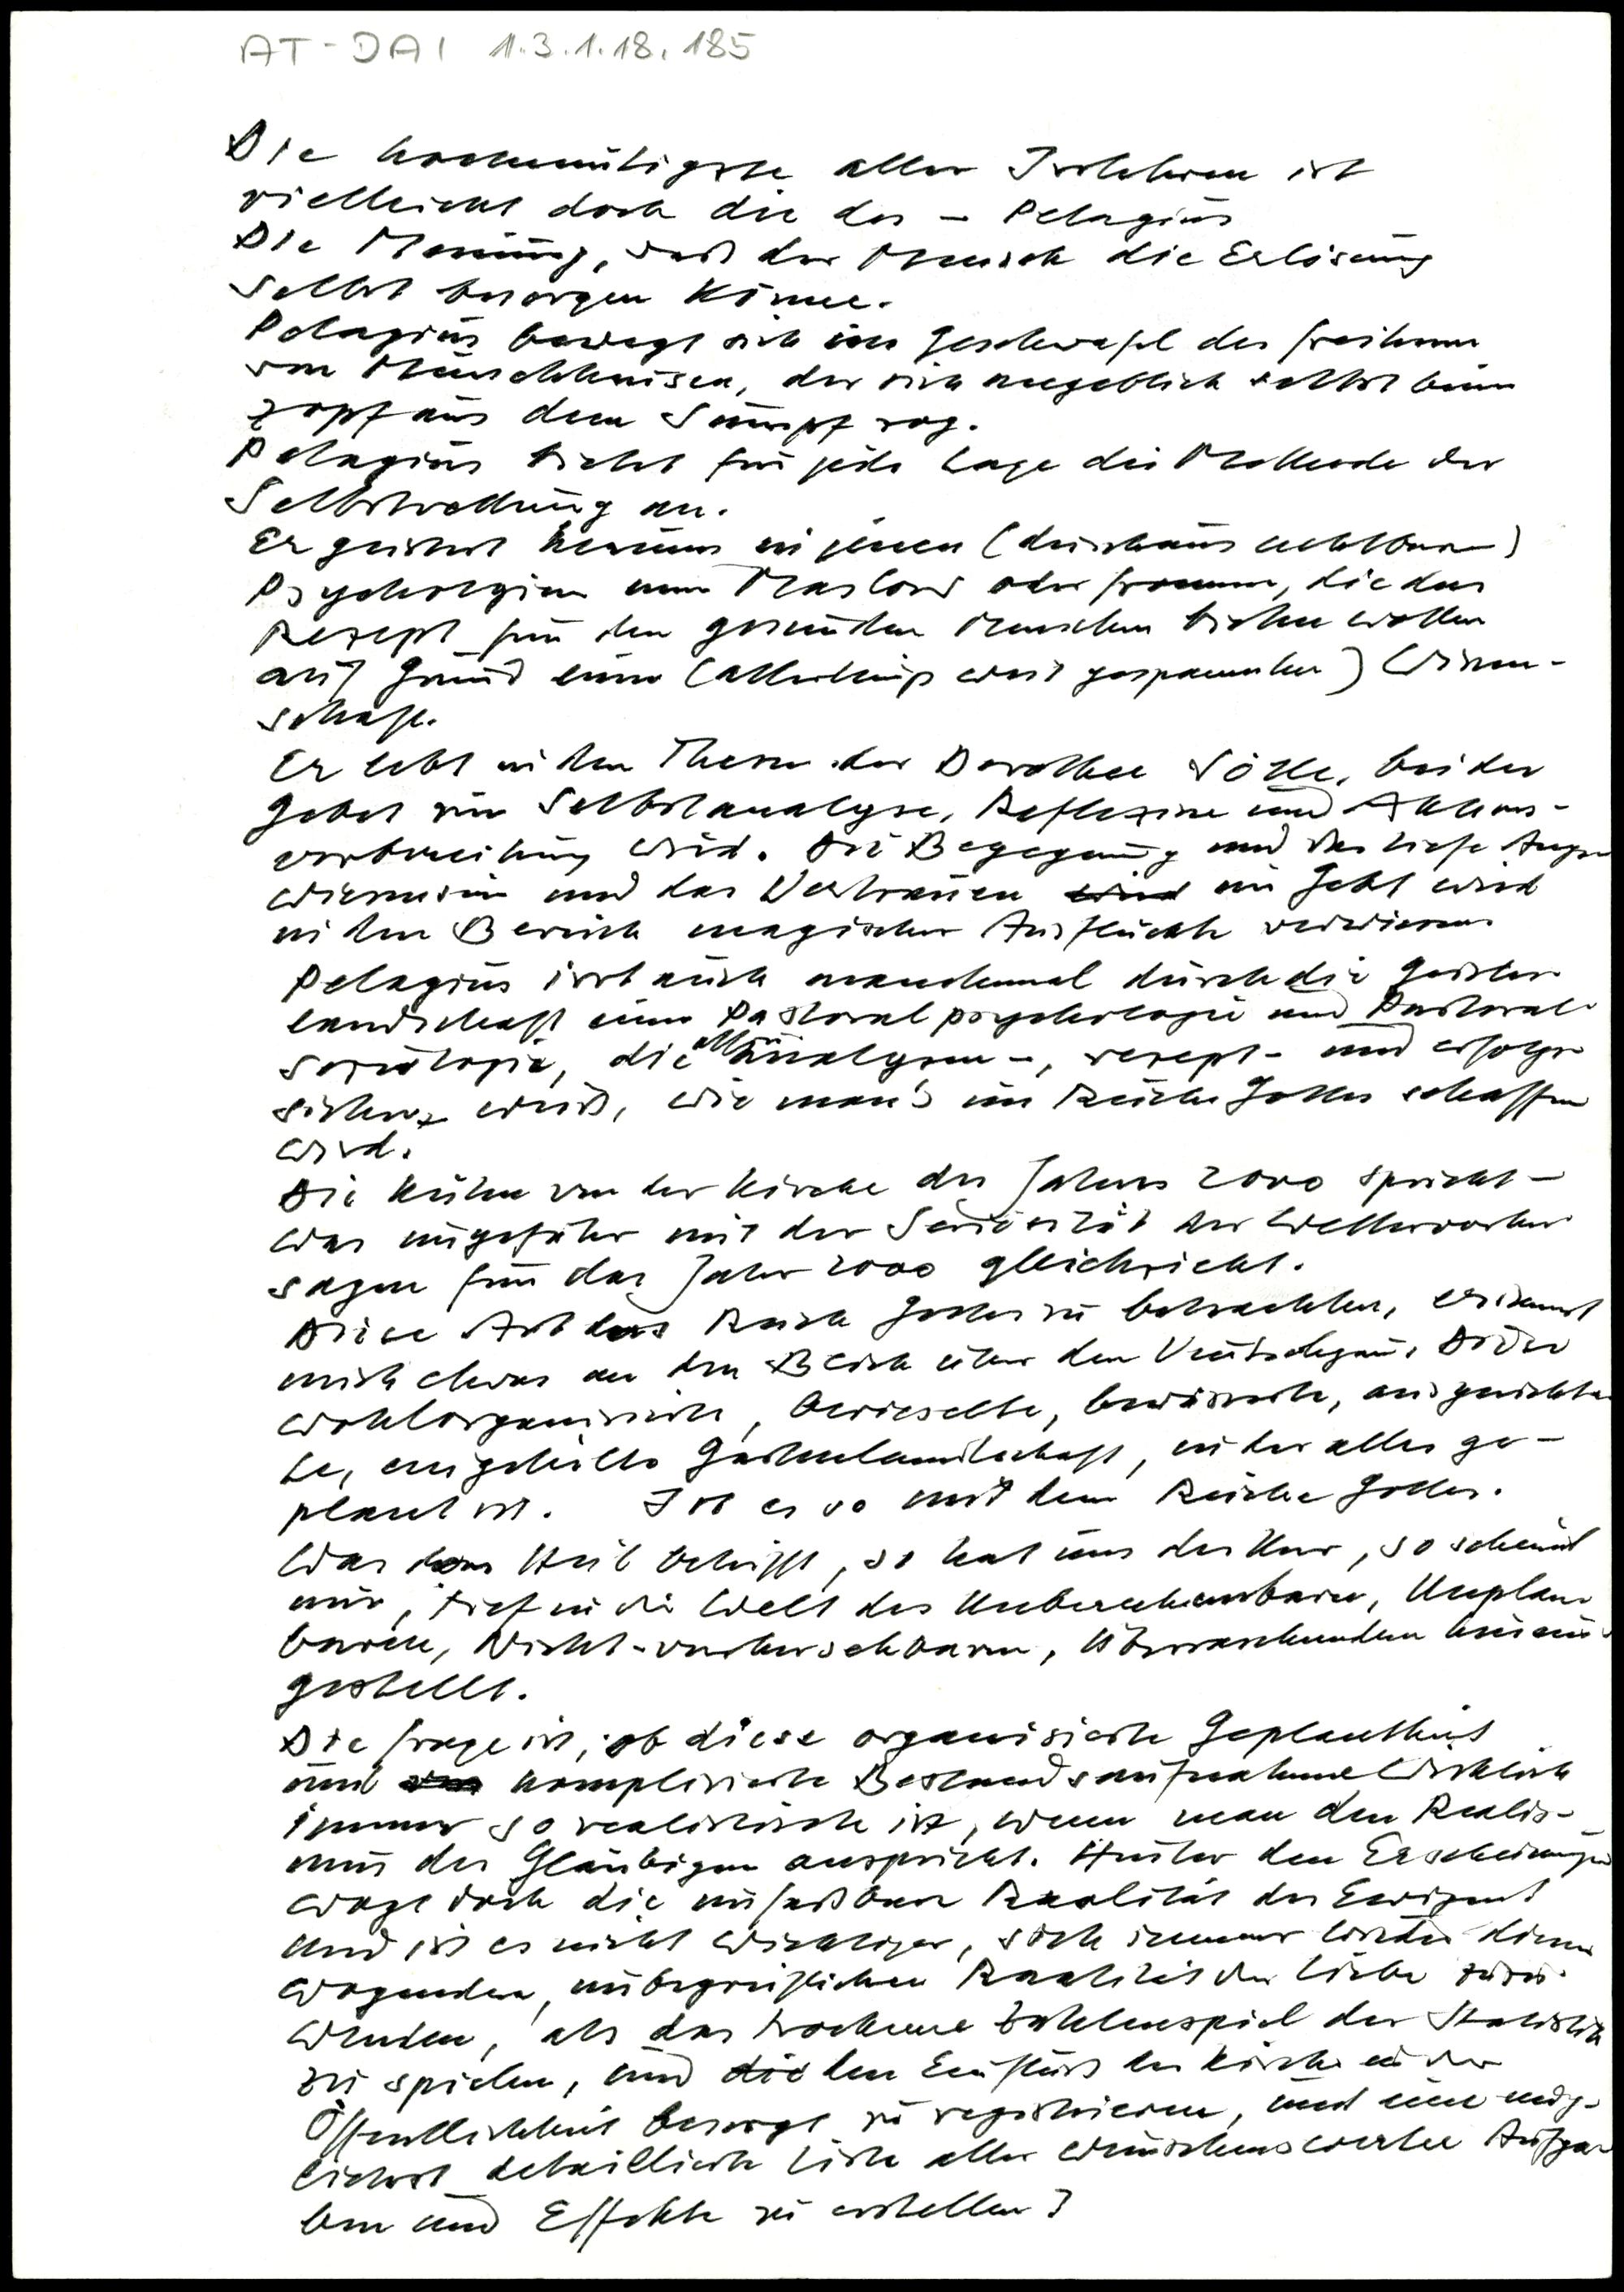 AT-DAI 1.3.1.18.185
Die hochmütigste aller Irrlehren ist
vielleicht doch die des - Pelagius
Die Meinung, daß der Mensch die Erlösung
selbst besorgen könne.
Pelagius bewegt sich im Geschwafel des Freiherrn
von Münchhausen, der sich angeblich selbst beim
Zopf aus dem Sumpf zog.
Pelagius bietet für jede Lage die Methode der
Selbstrettung an.
Er geistert herum in jenen (durchaus achtbaren)
Psychologien von Maslow oder Fromm, die das
Rezept für den gesunden Menschen bieten wollen
auf Grund einer (allerdings weit gespannten) Wissen-
schaft.
Er lebt in den Thesen der Dorothee Sölle, bei der
Gebet zur Selbstanalyse, Reflexion und Aktions-
vorbereitung wird. Die Begegnung und das tiefe Ange-
wiesensein und das Vertrauen im Gebet wird
in den Bereich magischer Ausflüchte verwiesen
Pelagius irrt auch manchmal durch die Geister
landschaft einer Pastoralpsychologie und Pastoral-
soziologie, die analysen-, rezept- und erfolgs-
sicher weiß, wie man's im Reiche Gottes schaffen
wird.
Die kühn von der Kirche des Jahres 2000 spricht -
was ungefähr mit der Seriosität der Wettervorher
sagen für das Jahr 2000 gleichzieht.
Diese Art das Reich Gottes zu betrachten, erinnert
mich etwas an den Blick über den Vintschgau. Diese
wohlorganisierte, berieselte, bewässerte, ausgerichte-
te, eingeteilte Gartenlandschaft, in der alles ge-
plant ist. Ist es so mit dem Reiche Gottes.
Was das Heil betrifft, so hat uns der Herr, so scheint
mir, tief in die Welt des Unberechenbaren, Unplan-
baren, Nicht-vorhersehbaren, Überraschenden hinaus
gestellt.
Die Frage ist, ob diese organisierte Geplantheit
und komplizierte Bestandsaufnahme wirklich
immer so realistisch ist, wenn man den Realis-
mus des Gläubigen anspricht. Hinter den Erscheinungen
wogt doch die unfaßbare Realität des Ewigen!
Und ist es nicht wichtiger, sich immer wieder dieser
wogenden, unbegreiflichen Realität der Liebe zuzu-
wenden, als das trockene Zahlenspiel der Statistik
zu spielen, und den Einfluß der Kirche in der
Öffentlichkeit besorgt zu registrieren, und eine mög-
lichst detaillierte Liste aller wünschenswerten Aufga-
ben und Effekte zu erstellen?